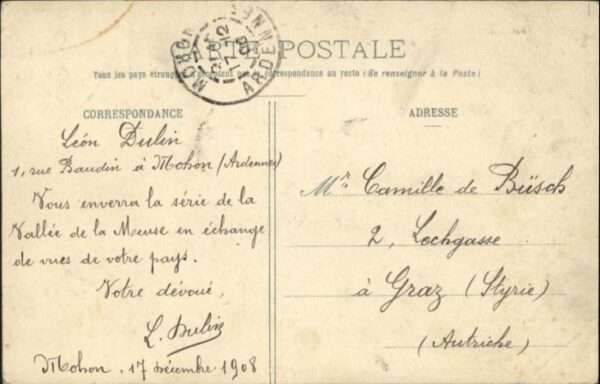 CARTE POSTALE
Tous les pays étrangers n'acceptent pas la correspondance au recto (Se renseigner à la Poste)
MOHON
17-12
08
ARDENNES
CORRESPONDANCE
Léon Dulin
1, rue Baudin à Mohon (Ardennes)
Vous enverra la série de la
Vallée de la Meuse en échange
de vues de votre pays.
Votre dévoué,
L. Dulin
Mohon, 17 décembre 1908
ADRESSE
Mr. Camille de Büsch
2, Lochgasse
à Graz (Styrie)
(Autriche)